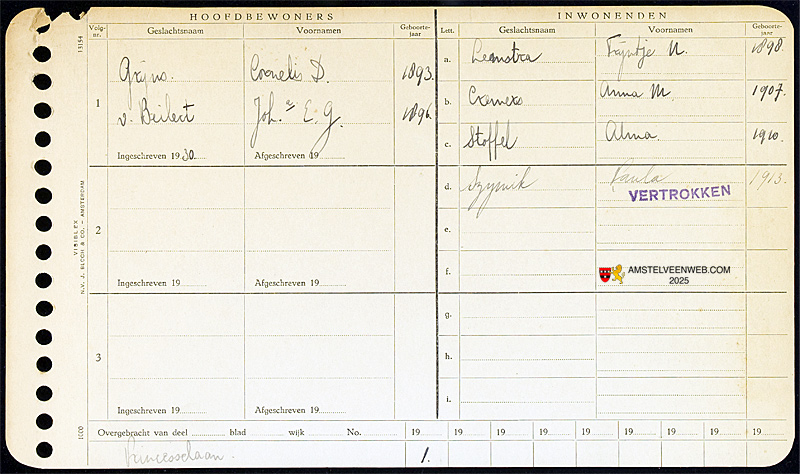 HOOFDBEWONERS INWONENDEN
Volg-nr. Geslachtsnaam Voornamen Geboorte-jaar Lett. Geslachtsnaam Voornamen Geboorte-jaar
13154
1 Grijns. Cornelis D. 1893.
v. Beilert Joh.a E. G. 1896.
Ingeschreven 1930 Afgeschreven 19
2
Ingeschreven 19 Afgeschreven 19
3
Ingeschreven 19 Afgeschreven 19
a. Leenstra Trijntje N. 1898.
b. Cremers Anna M. 1907.
c. Stoffel Alma. 1910.
d. Paula 1913.
VERTROKKEN
e.
f.
AMSTELVEENWEB.COM
2025
g.
h.
i.
VISIBLEX
N.V. J. BLOCH & CO. - AMSTERDAM
1000
Overgebracht van deel blad wijk No. 19 19 19 19 19 19 19 19 19
Princesselaan. 1.